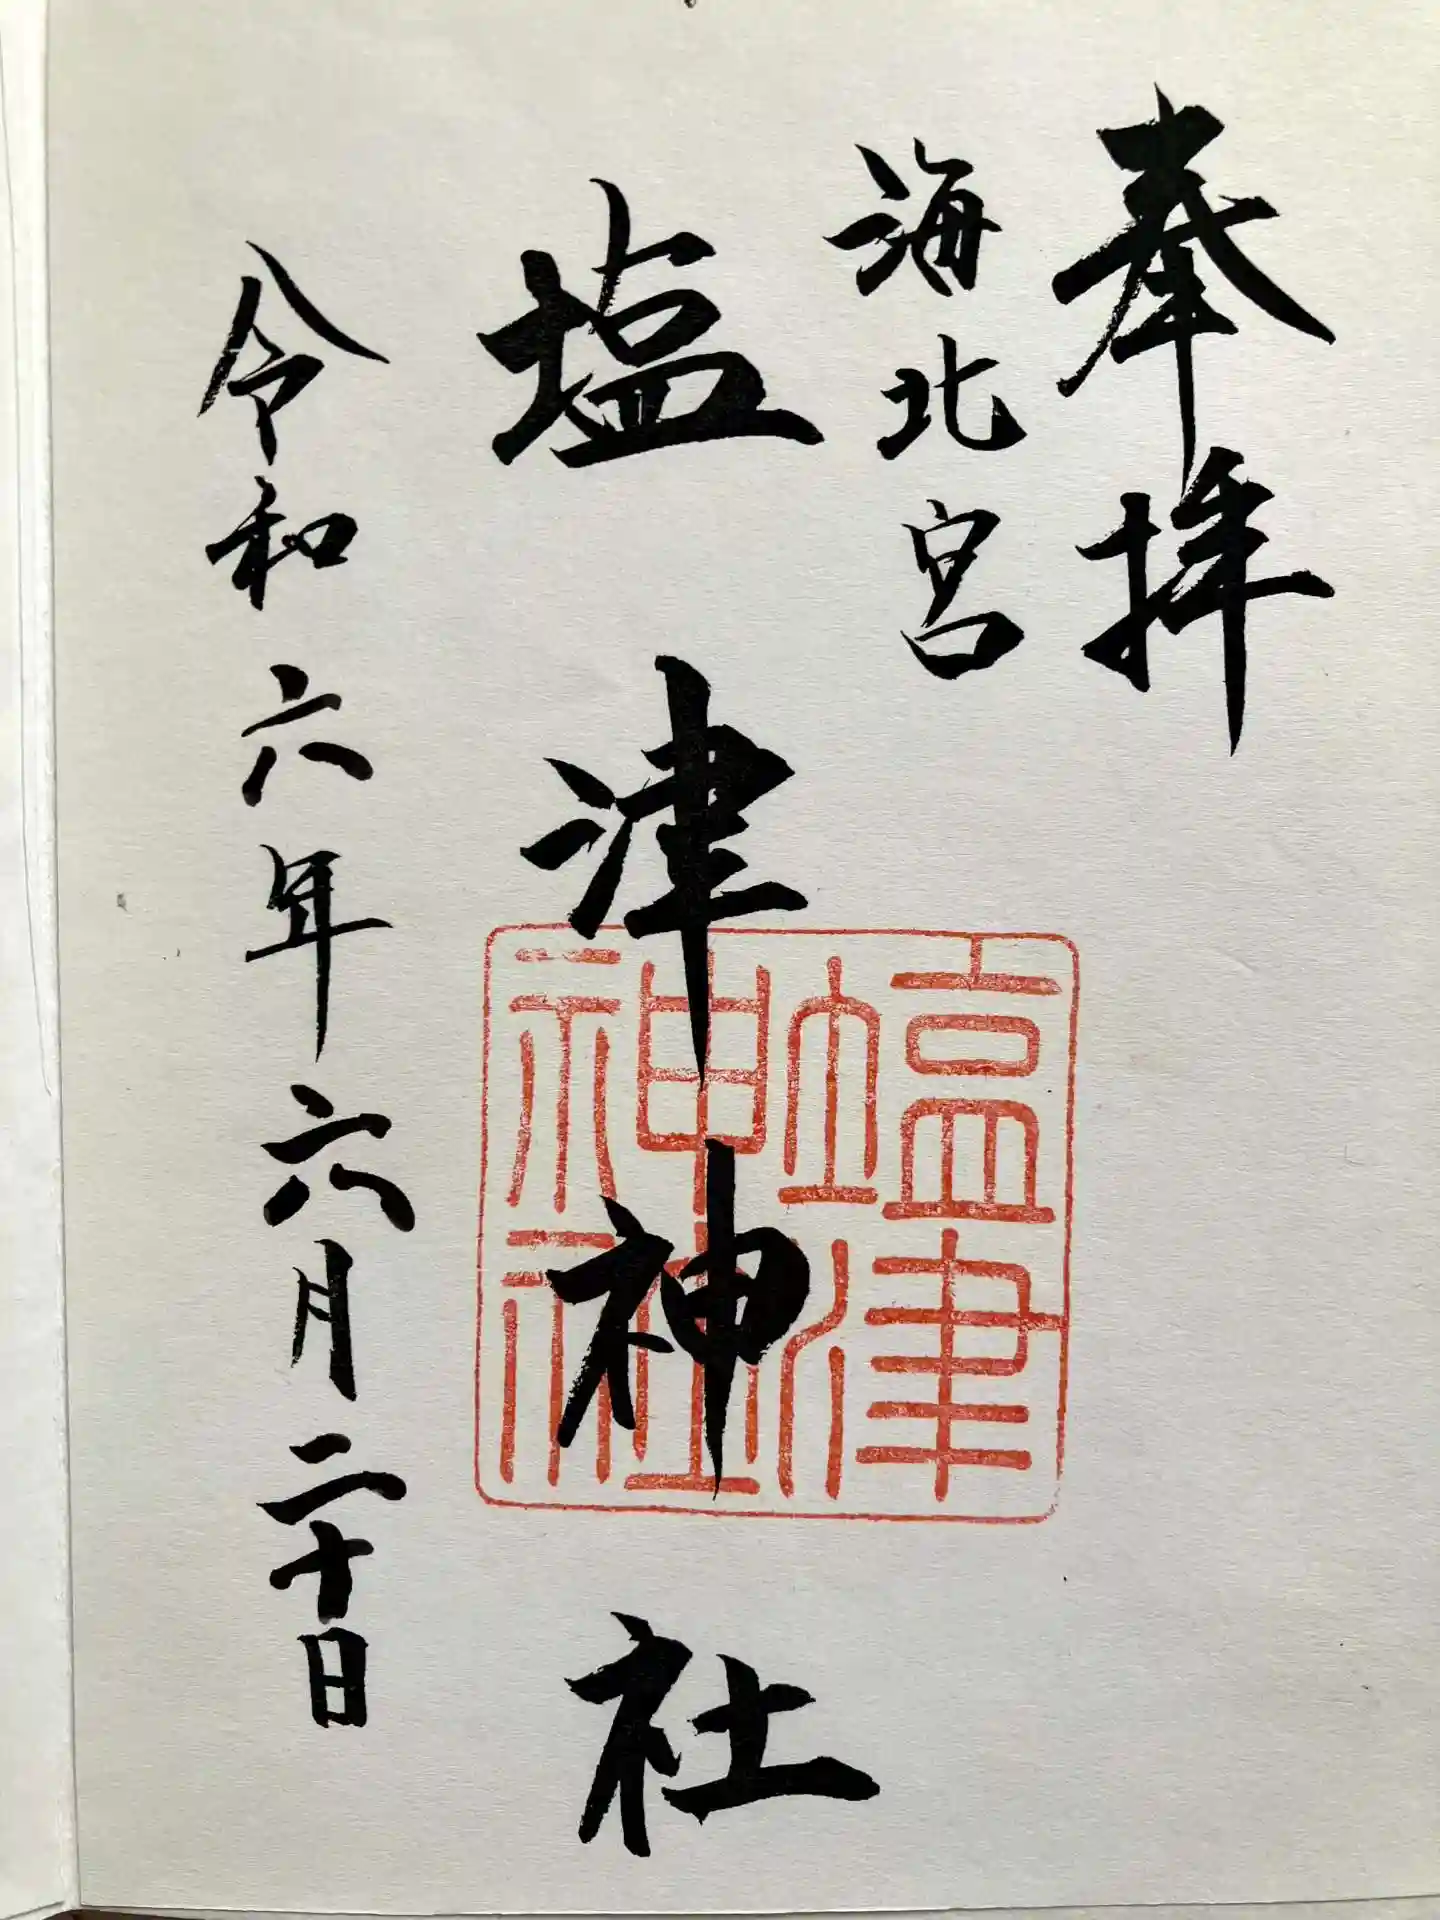 奉拝
海北宮
塩津神社
塩津
神社
令和六年六月二十日